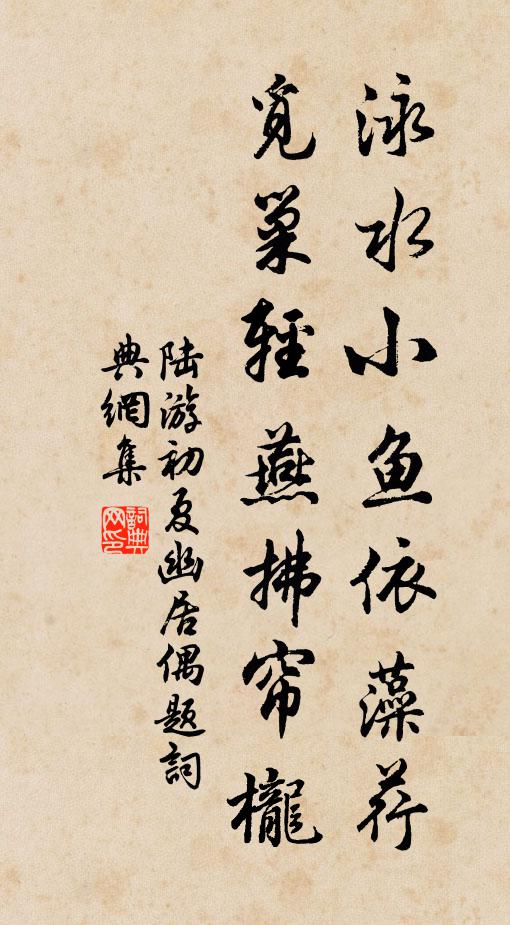 泳水小鱼依藻荇
觅巢轻燕拂帘栊
陆游初夏幽居偶题词
典网集
词典网印